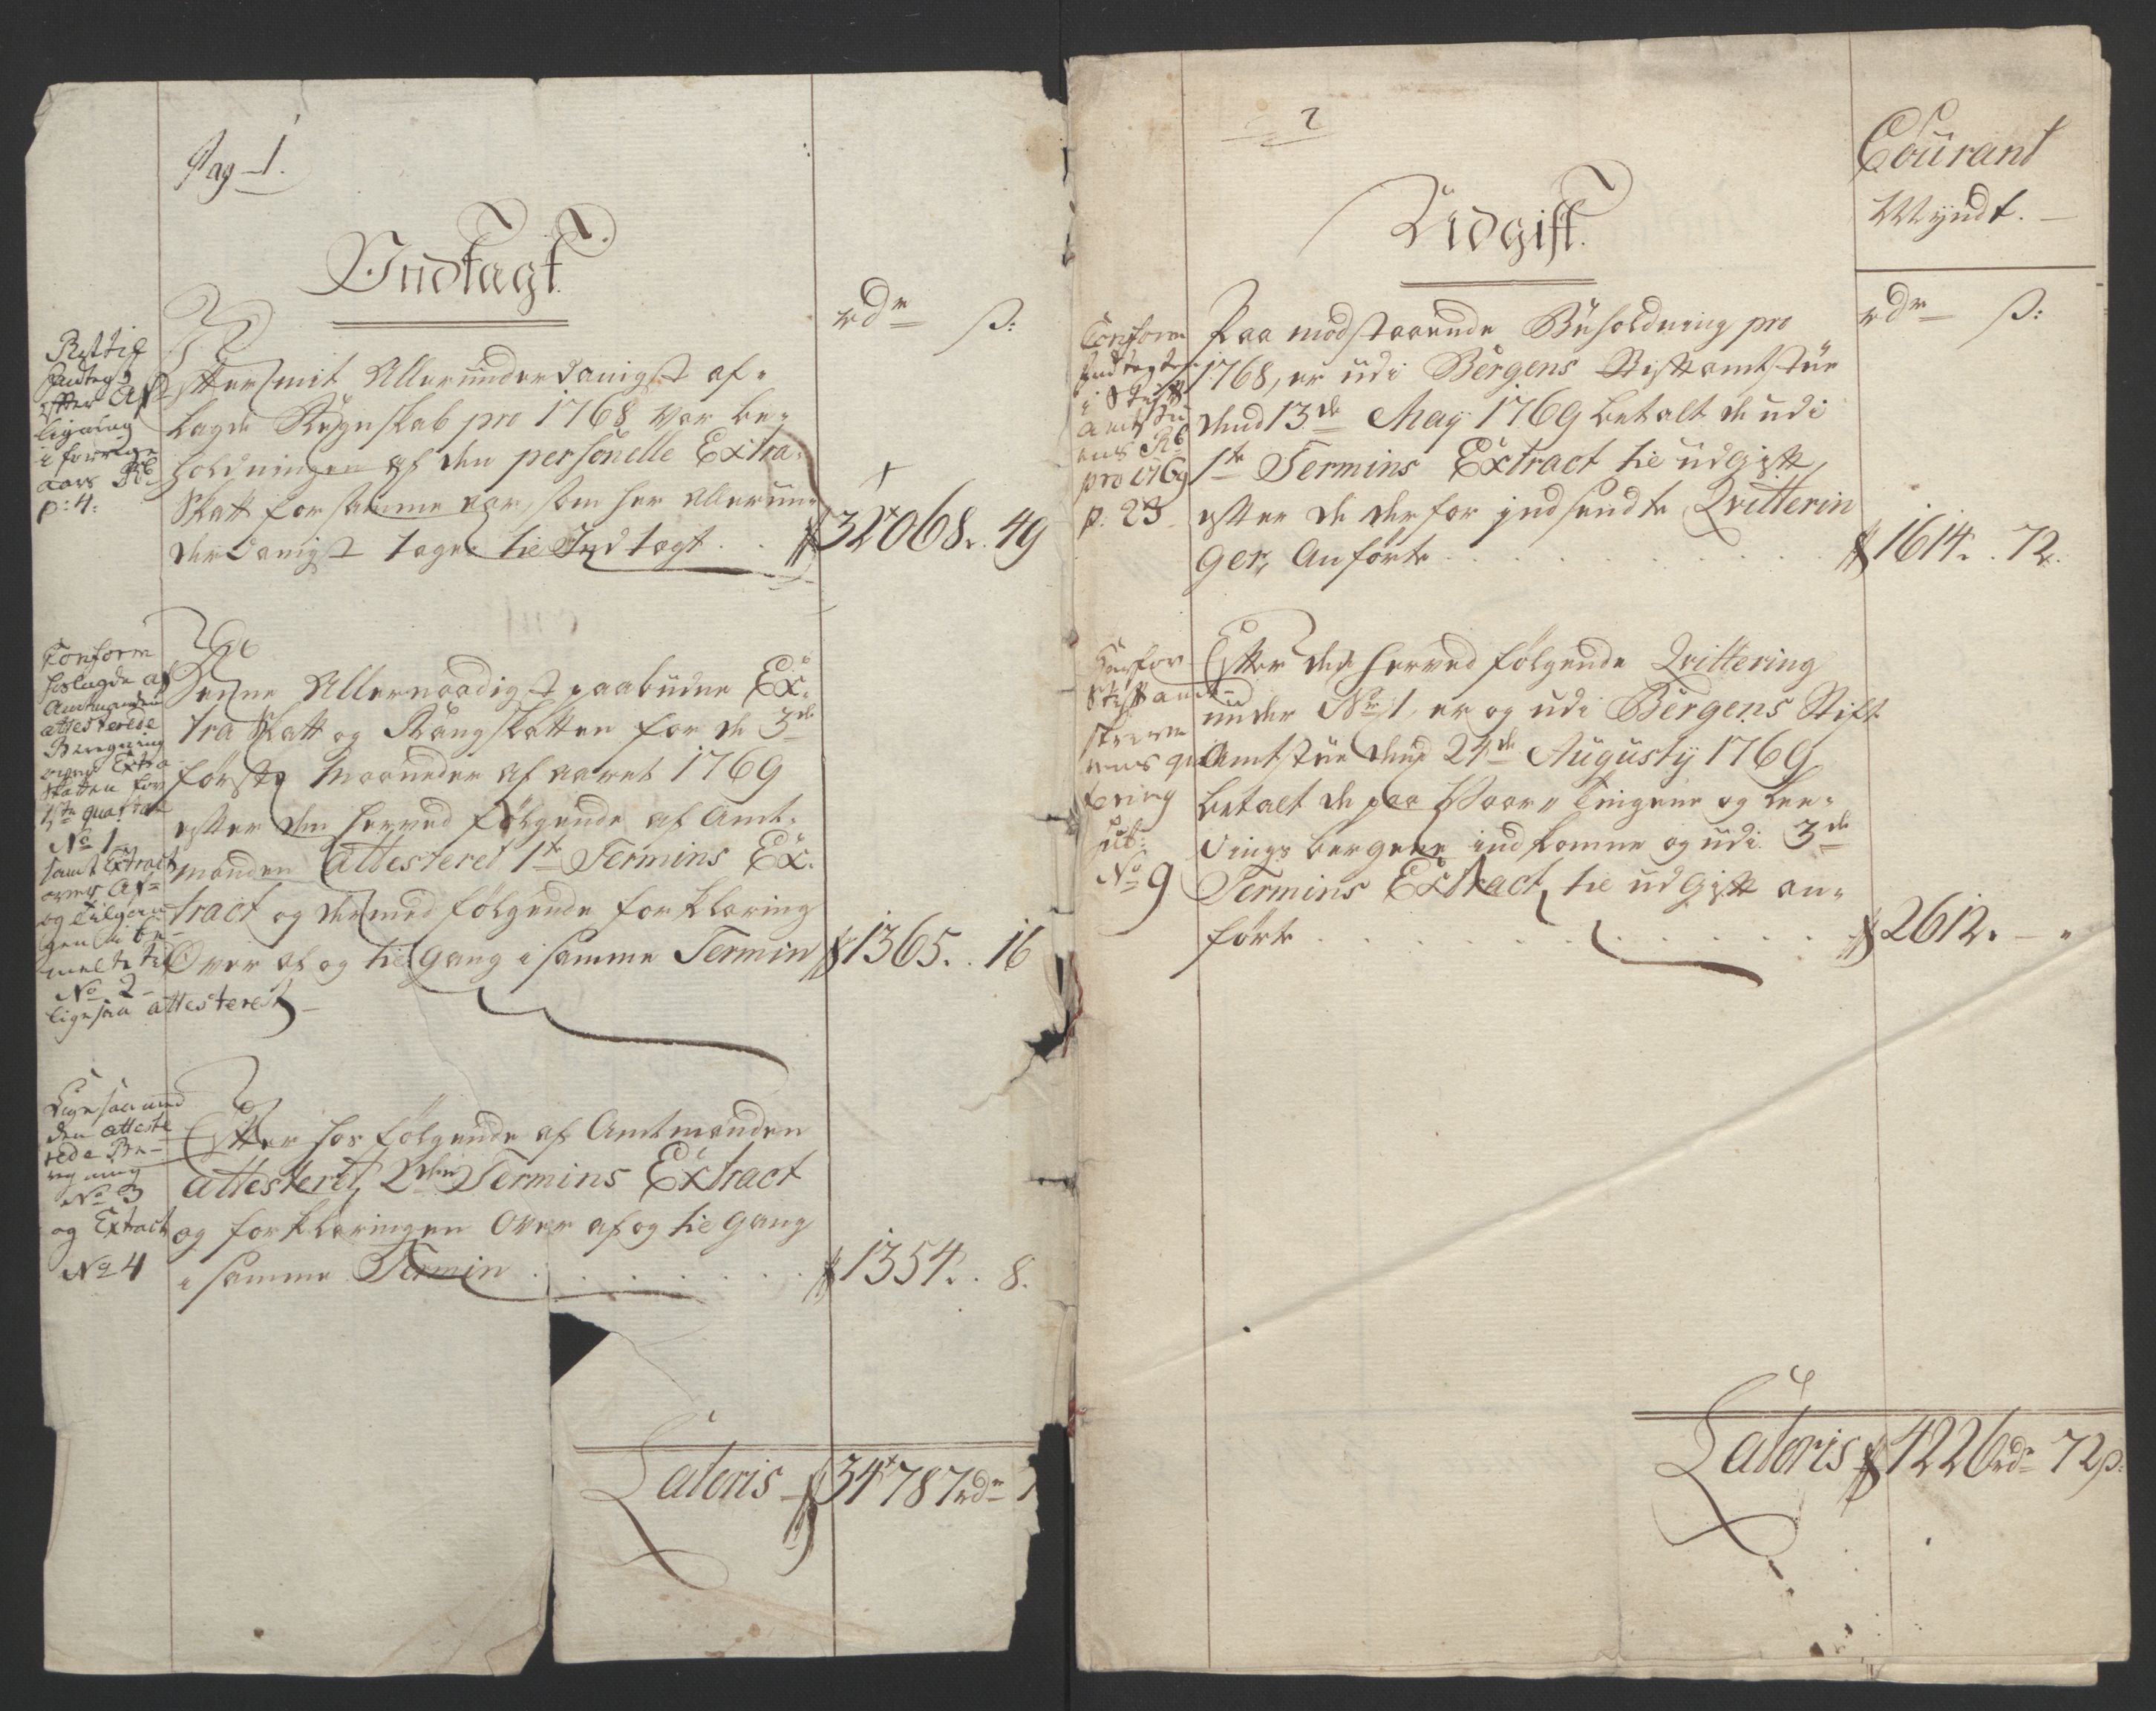 Pag 1.
Indtægt.
rdr ß:
Rigtig
Indtegt
efter Af-
ligning
i forrige
Aars Rb.
p: 4.
Efter mit Allerunderdanigst af-
lagde Regnskab pro 1768 var be-
holdningen af den personelle Extra
Skatt for samme aar, som her allerun-
derdanigst tages til Indtægt . . 32068. 49
Conform
hoslagde af
Amtmanden
attesterede
Beregning
over Extra
Skatten for
1te quartal
No 1
samt Extract
over Af-
og Tilgan-
gen
No 2
ligesaa attesteret
Denne Allernaadigst paabudne Ex-
tra Skatt og Rangskatten for de 3de
første Maaneder af aaret 1769
efter den herved følgende af Amt-
manden attesteret 1te Termins Ex-
tract og dermed følgende forklaring
Over af og til gang i samme Termin 1365. 16
Ligesaa med
den atteste
rede Be-
regning
No 3
og Extract
No 4
Efter hos følgende af Amtmanden
attesteret 2den Termins Extract
og forklaringen Over af og til gang
i samme Termin . . . . . . 1354. 8.
Lateris 34787 rdr
2
Udgift.
Courant
Myndt.
rdr ß:
Conform
Indtegt
i Stift
amtstu
ens Rb
pro 1769
p. 23
Paa modstaaende Beholdning pro
1768, er udi Bergens Stiftamtstue
dend 13de May 1769 betalt de udi
1te Termins Extract til udgift
efter de derfor indsendte Qvitterin
ger, Anførte . . . . . . 1614. 72.
Confor
Stiftamt-
skrive
rens qvi
tering
sub:
No 9
Efter den herved følgende Qvittering
under No 1, er og udi Bergens Stift
Amtstue dend 24de Augusty 1769
betalt de paa Vaar Tingene og
indkomne og udi 3de
Termins Extract til udgift an-
førte . . . . . . 2612. — "
Lateris 4226 rdr 72 ß: